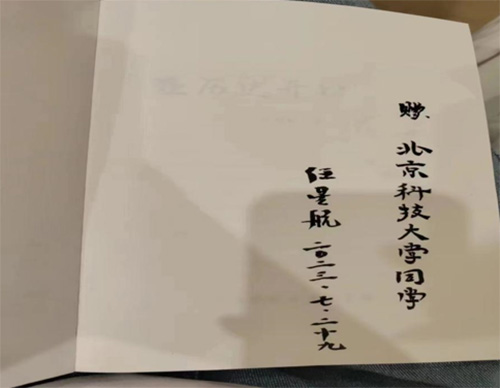 赠 北京科技大学同学
任星航 二〇二三·七·二十九